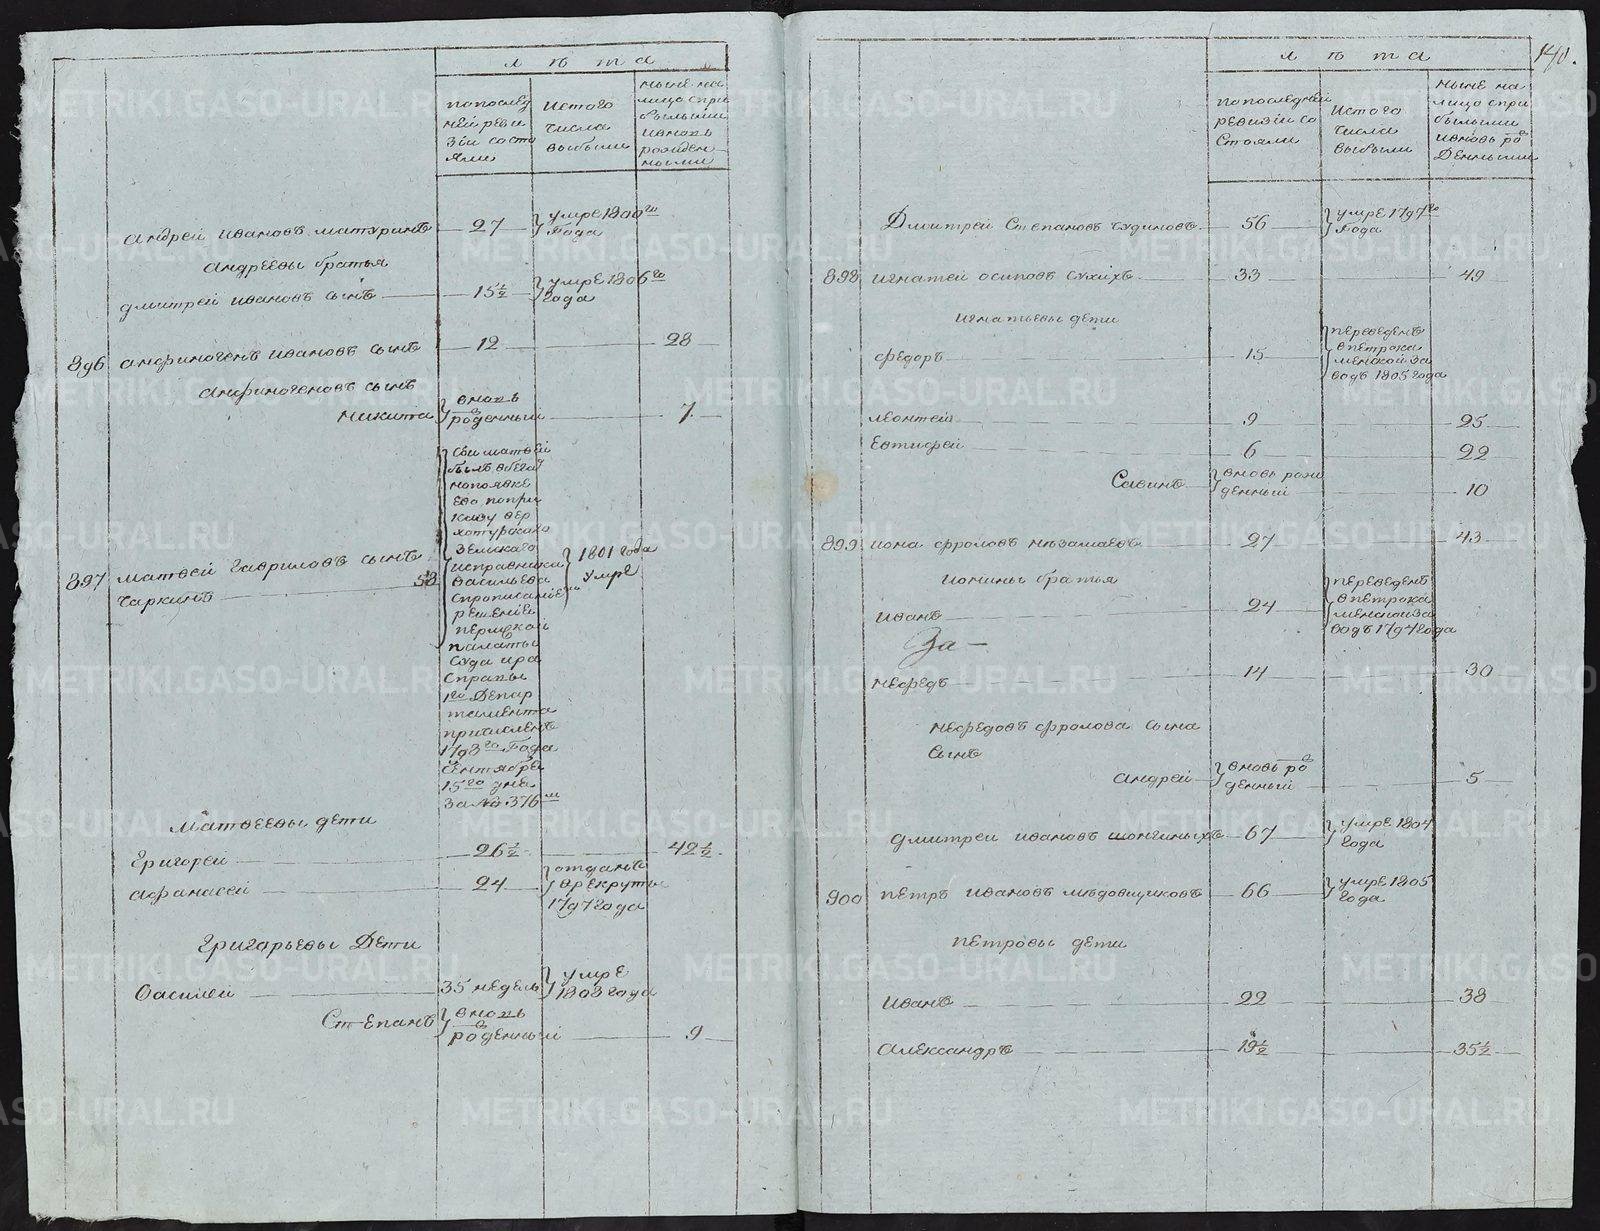 лѣта
попослед
ней реви
зіи состо
яли
Истого
числа
выбыли
ныне на
лицо спри
былыми
ивновь
рожден
ными
Андрей Ивановъ Матуринъ 27 умре 1800го
Года
Андреевы братья
Дмитрей Ивановъ сынъ 15½ умре 1806го
года
896 Анфиногенъ Ивановъ сынъ 12 28
Анфиногеновъ сынъ
Никита вновь
роденный 7
Сеи матвей
былъ вбегах
попоявке
ево попри
казу вер
хотурскаго
Земскаго
исправника
Васильева
спрописаніем
решеніеи
пермской
палаты
суда ира
справы
1го Депар
тамента
причисленъ
1798го Года
Сентября
15го дня
за №376м
897 Матвей Гавриловъ сынъ
Чаркинъ 58
1801 года
умре
Матвеевы дети
Григорей 26½ 42½
Афанасей 24 отданъ
врекруты
1797 года
Григорьевы Дети
Василей 35 недель умре
1803 года
Степанъ вновь
роденный 9
140.
лѣта
попоследней
ревизіи со
стояли
Истого
числа
выбыли
ныне на
лицо спри
былыми
ивновь ро
Денными
Дмитрей Степановъ Чудиновъ 56 умре 1797го
Года
898 Игнатей Осиповъ Сухихъ 33 49
Игнатьевы дети
Федоръ 15 переведенъ
впетрока
менской за
водъ 1805 года
Леонтей 9 25
Евтифей 6 22
Савинъ вновь рож
денный 10
899 Иона Фроловъ Незамаевъ 27 43
Ионины братья
Иванъ 24 переведенъ
впетрока
менской за
водъ 1797 года
За
Нефедъ 14 30
Нефедовъ Фролова сына
сынъ
Андрей вновь ро
денный 5
Дмитрей Ивановъ Шонгиныхъ 67 умре 1804
года
900 Петръ Ивановъ Медовщиковъ 66 умре 1805
года
Петровы дети
Иванъ 22 38
Александръ 19½ 35½